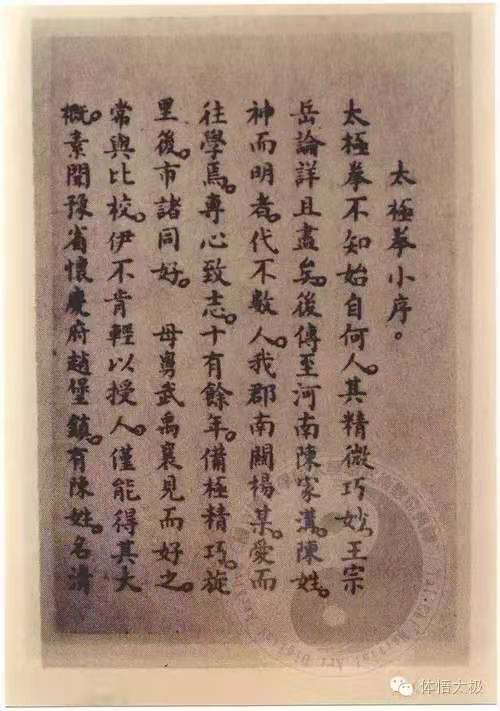 太極拳小序。
太極拳不知始自何人。其精微巧妙。王宗
岳論詳且盡矣。後傳至河南陳家溝。陳姓。
神而明者。代不數人。我郡南關楊某。愛而
往學焉。專心致志。十有餘年。備極精巧。旋
里後。市諸同好。母舅武禹襄見而好之。
常與比校。伊不肯輕以授人。僅能得其大
概。素聞豫省懷慶府趙堡鎮。有陳姓。名清
体悟太极